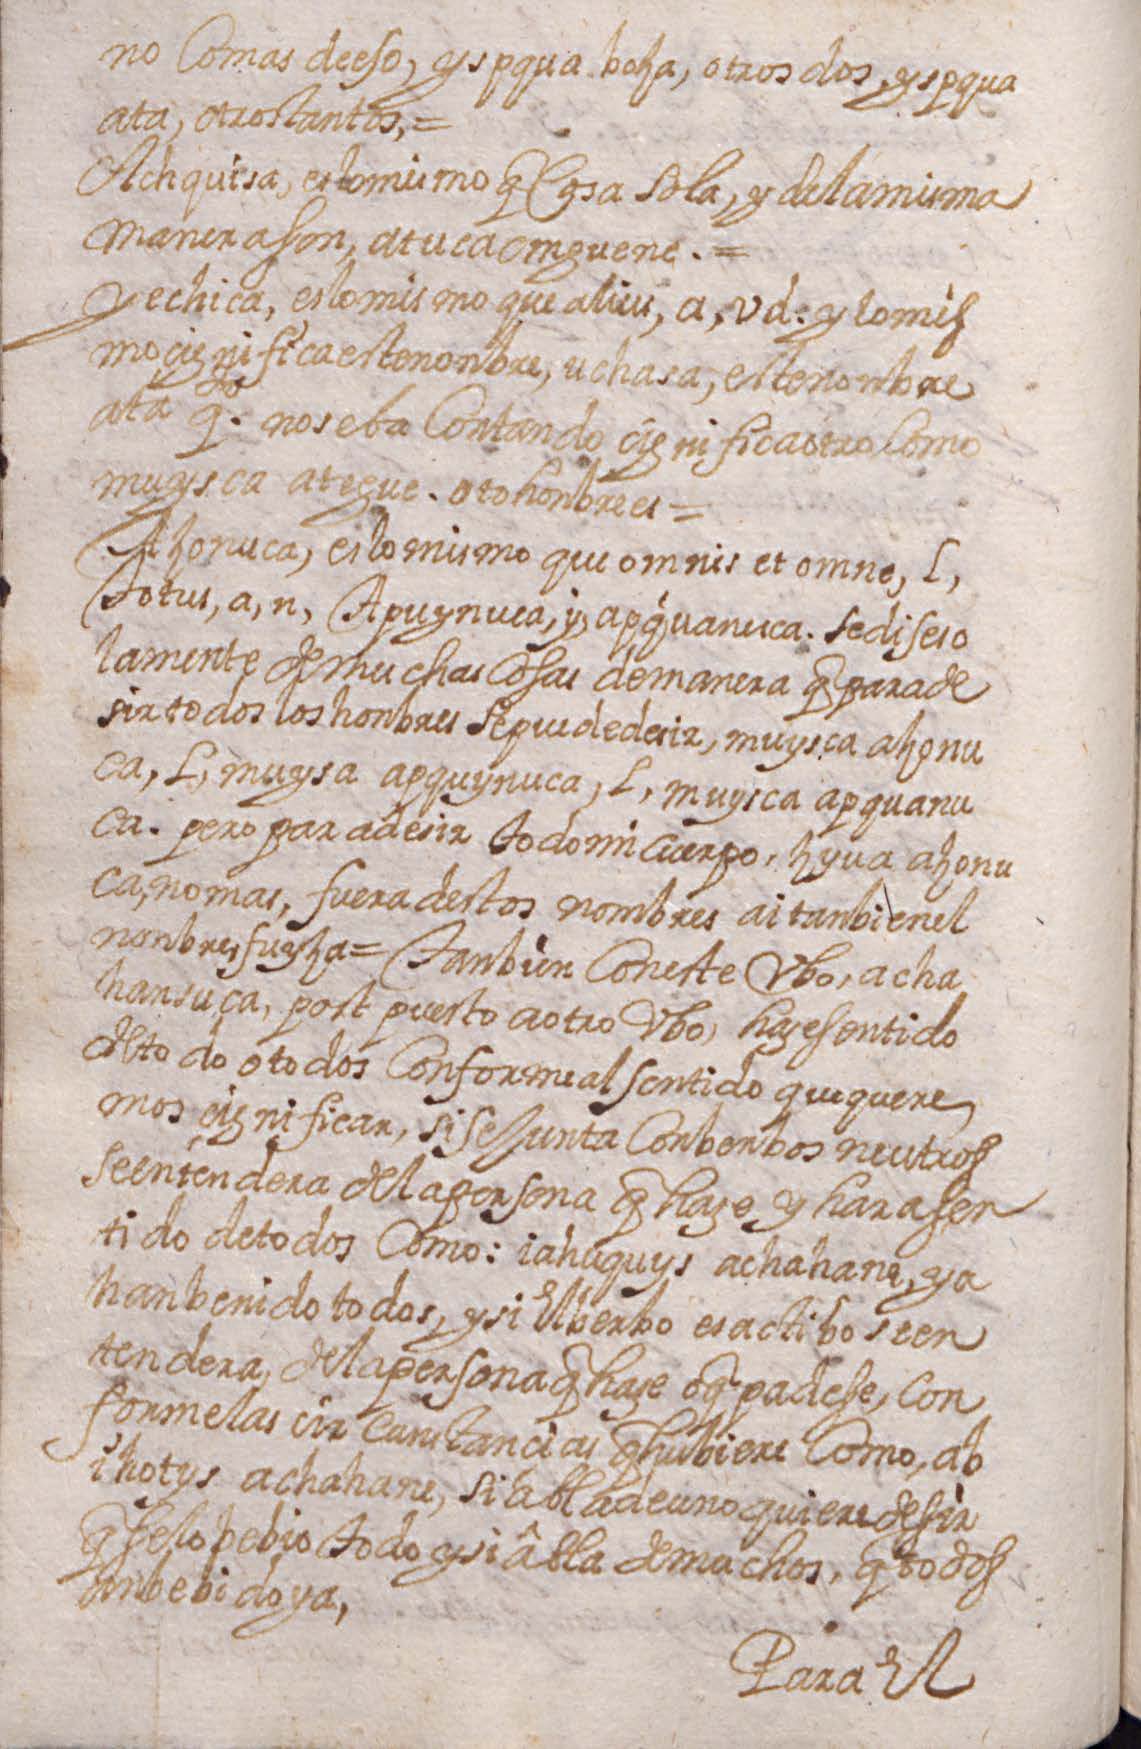 no Comas deeso, ys pqua boza, otros dos, ys pqua
ata, otrostantos, =
Achquisa, eslomismo q̃ Cosa sola, y delamisma
manerason, atucaomguene. =
Yechica, eslomismo que alius, a, vd. y lomis
mo çignificaestenonbre, uchasa, estenonbre
ata q̃do. noseba Contando çignificaotro Como
muysca ategue. otohonbrees =
Azonuca, eslomismo que omnis et omne, L,
totus, a, n, Apuynuca, y, apq̃uanuca. sediseso
lamente de muchas Cosas demanera q̃ parade
sirtodos loshonbres sepuededesir, muysca azonu
ca, L, muysa apquynuca, L, muysca apquanu
ca. pero paradesir todomi Cuerpo, zyua azonu
ca, nomas, fueradestos nombres aitanbienel
nonbre, fuyza = tanbien Coneste Vbo, acha
hansuca, post puesto aotro Vbo, hazesentido
de to do otodos Conformealsentido quequere
mos çignificar, siseJunta Conberbos neutros
seentendera delapersona q̃ haze y harasen
tido detodos Como: iahuquys achahane, ya
hanbenido todos, ysi Elberbo esactibo seen
tendera, delapersonaq̃ haze oq̃ padese, Con
formelas cirCunstancias q̃ hubiere Como, ab
ihotys achahane, si âbladeuno quieredesir
q̃ selobebio todo ysi âbla demuchos, q̃ todos
anbebidoya,
Para El